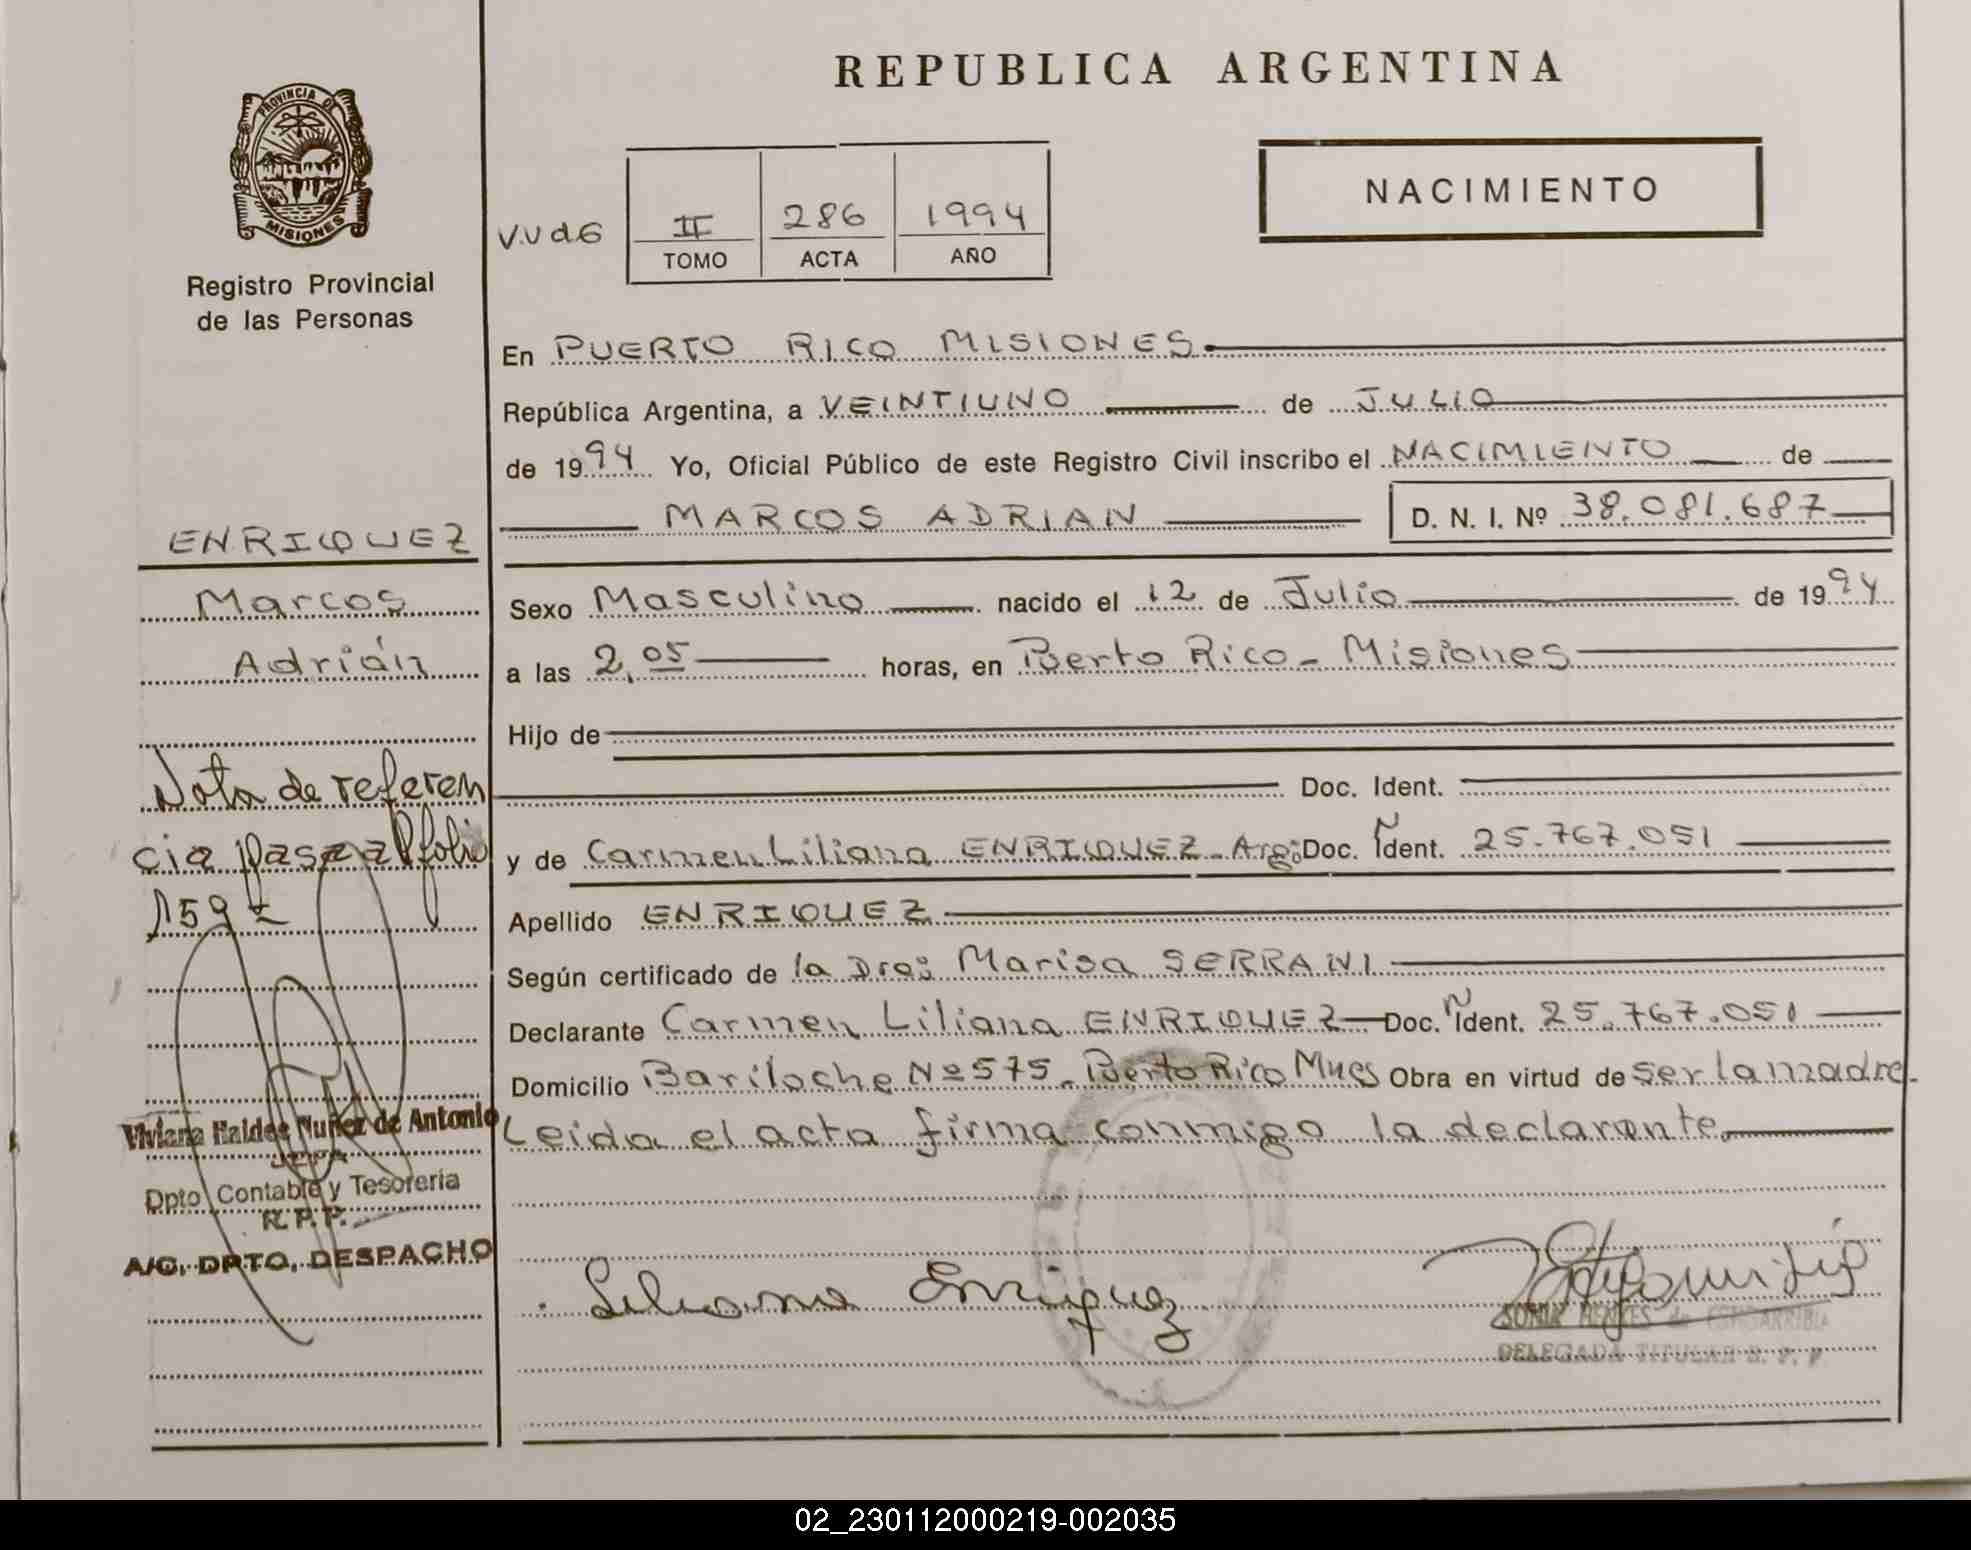 REPUBLICA ARGENTINA
PROVINCIA DE
MISIONES
Registro Provincial
de las Personas
V.V d G
II 286 1994
TOMO ACTA AÑO
NACIMIENTO
En PUERTO RICO MISIONES.
República Argentina, a VEINTIUNO de JULIO
de 1994 Yo, Oficial Público de este Registro Civil inscribo el NACIMIENTO de
MARCOS ADRIAN D. N. I. Nº 38.081.687
Sexo Masculino nacido el 12 de Julio de 1994
a las 2,05 horas, en Puerto Rico - Misiones
Hijo de
Doc. Ident.
y de Carmen Liliana ENRIQUEZ - Arg: Doc. Ñ Ident. 25.767.051
Apellido ENRIQUEZ
Según certificado de la Dra: Marisa SERRANI
Declarante Carmen Liliana ENRIQUEZ Doc. Ñ Ident. 25.767.051
Domicilio Bariloche Nº 575 - Puerto Rico Mnes Obra en virtud de ser la madre.
Leida el acta firma conmigo la declarante.
Liliana Enriquez
SONIA HENKES de
DELEGADA TITULAR R. P. P.
ENRIQUEZ
Marcos
Adrián
Nota de referen
cia pasa al folio
159
Viviana Haidee Nuñez de Antonio
JEFA
Dpto Contable y Tesorería
R. P. P.
A/C. DPTO. DESPACHO
02_230112000219-002035